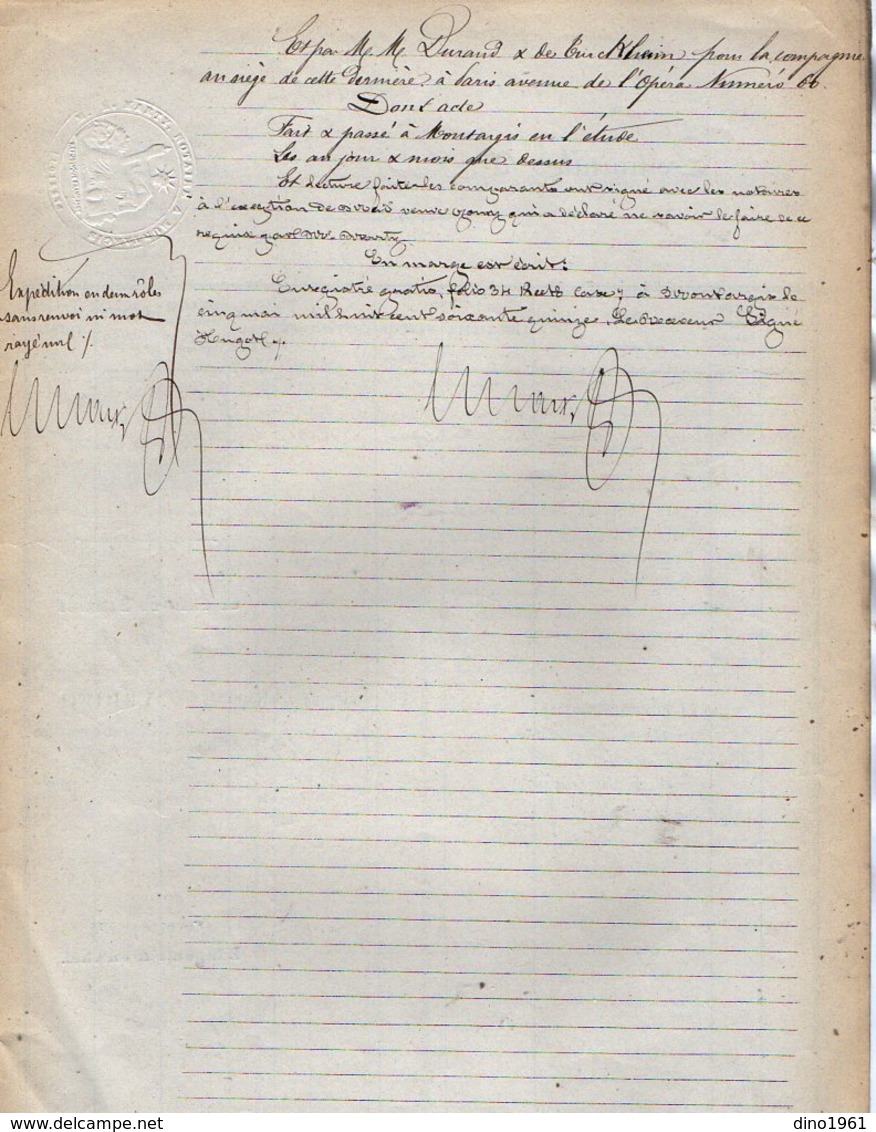 Et par M. M. Durand & de Turckheim pour la compagnie
au siège de cette dernière à Paris avenue de l'Opéra Numéro 60.
Dont acte
Fait & passé à Montargis en l'étude
Les an jour & mois que dessus
Et lecture faite les comparants ont signé avec les notaires
à l'exception de Made veuve qui a déclaré ne savoir le faire de ce
requise par Me
En marge est écrit:
Enregistré folio 34 Recto case 7 à Montargis le
cinq mai mil huit cent soixante quinze. Le Receveur Signé
Hugot
Expédition en deux rôles
sans renvoi ni mot
rayé nul
delcampe.net
dino1961